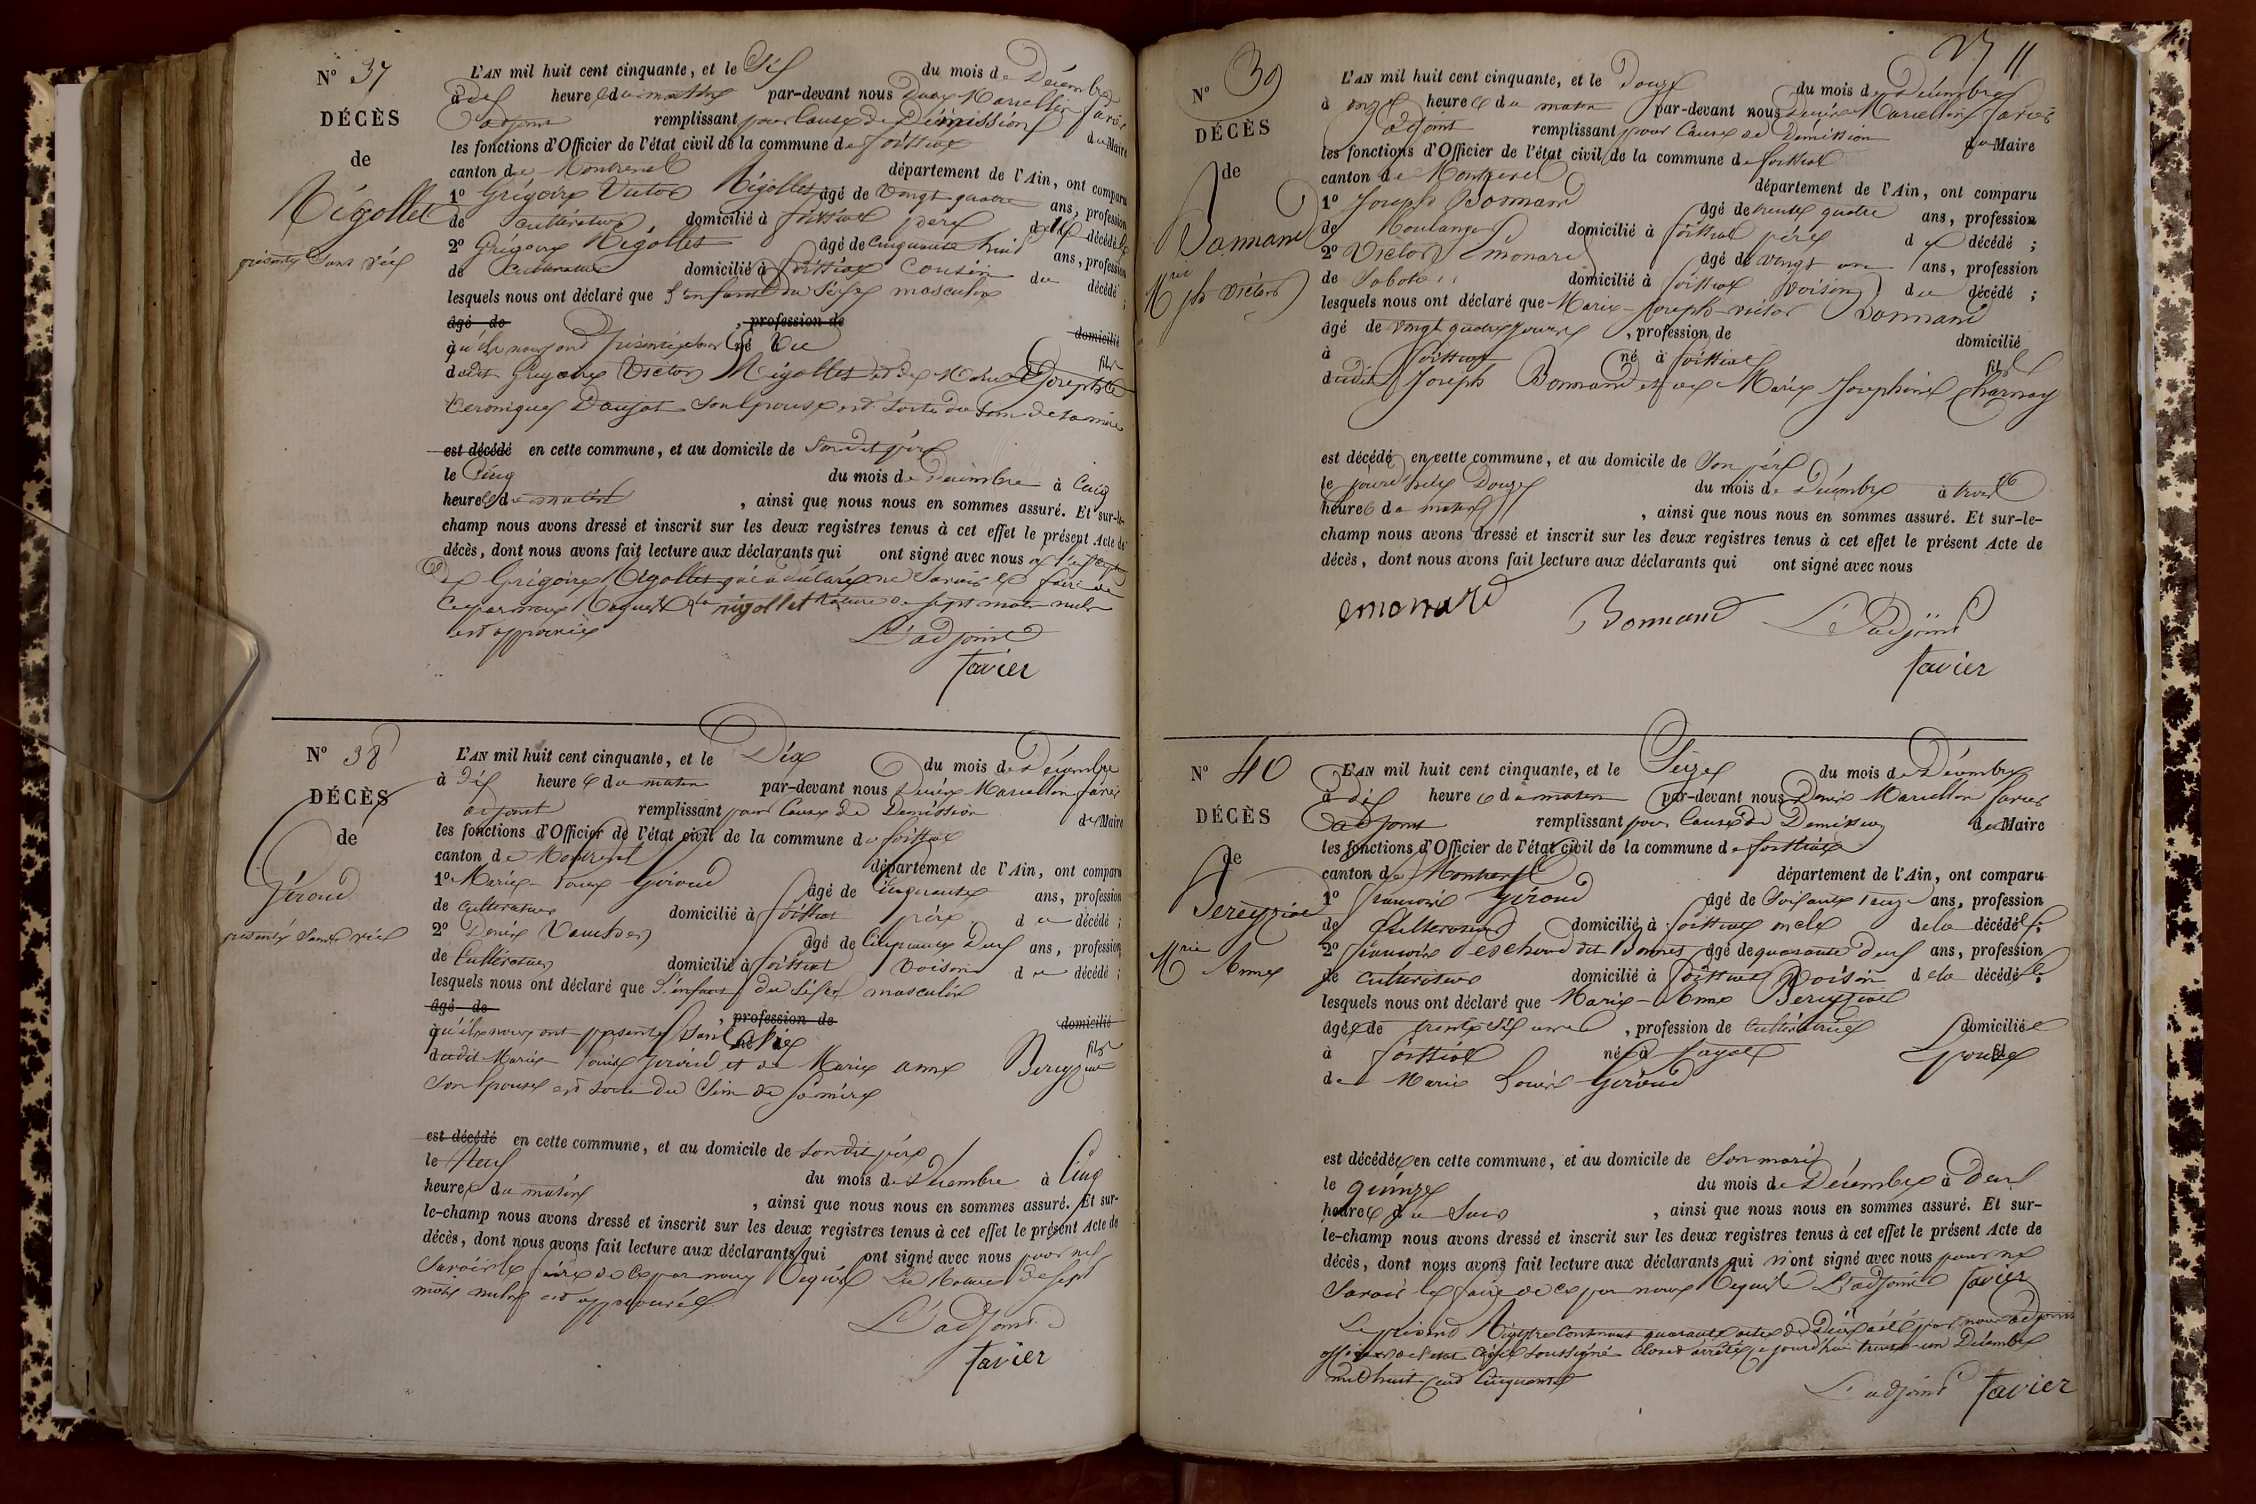 N° 37
DÉCÈS
de
Nigollet
présenté sans vie
L'AN mil huit cent cinquante, et le Six du mois de Décembre
à dix heures du matin par-devant nous Denis Marcellin favier
adjoint remplissant pour cause de Démission du Maire
les fonctions d'Officier de l'état civil de la commune de
canton de Montrevel département de l'Ain, ont comparu
1° Grégoire Victor Nigollet âgé de vingt quatre ans, profession
de cultivateur domicilié à père du décédé
2° Grégoire Nigollet âgé de cinquante huit ans, profession
de cultivateur domicilié à cousin du décédé ;
lesquels nous ont déclaré que l'enfant du sexe masculin
âgé de , profession de domicilié
qu'ils nous ont présenté sans né à vie fils
dudit Grégoire Victor Nigollet et de Marie Josephte
veronique Daujat son épouse est sorti du sein de sa mère
est décédé en cette commune, et au domicile de son dit père
le Cinq du mois de Décembre à Cinq
heures du matin , ainsi que nous nous en sommes assuré. Et sur-le-
champ nous avons dressé et inscrit sur les deux registres tenus à cet effet le présent Acte de
décès, dont nous avons fait lecture aux déclarants qui ont signé avec nous
Grégoire Nigollet qui a déclaré ne savoir le faire de
ce par nous Requis La nigollet Rature de sept mots nuls
est approuvée
L'adjoint
favier
N° 38
DÉCÈS
de
Géroud
présenté sans vie
L'AN mil huit cent cinquante, et le Dix du mois de Décembre
à dix heures du matin par-devant nous Denis Marcellin favier
adjoint remplissant pour cause de Démission du Maire
les fonctions d'Officier de l'état civil de la commune de
canton de Montrevel département de l'Ain, ont comparu
1° Marie Louis Géroud âgé de cinquante ans, profession
de cultivateur domicilié à père du décédé ;
2° Denis âgé de cinquante Deux ans, profession
de cultivateur domicilié à voisin du décédé ;
lesquels nous ont déclaré que l'enfant du sexe masculin
âgé de , profession de domicilié
qu'ils nous ont présenté sans né à vie fils
dudit Marie Louis Géroud et de Marie anne Bereyziat
son épouse est sorti du sein de sa mère
est décédé en cette commune, et au domicile de son dit père
le Neuf du mois de Décembre à Cinq
heures du matin , ainsi que nous nous en sommes assuré. Et sur-
le-champ nous avons dressé et inscrit sur les deux registres tenus à cet effet le présent Acte de
décès, dont nous avons fait lecture aux déclarants qui ont signé avec nous pour ne
savoir le faire de ce par nous Requis La Rature de sept
mots nuls est approuvée
L'adjoint
favier
11
N° 39
DÉCÈS
de
Bonnand
Mrie jph victor
L'AN mil huit cent cinquante, et le Douze du mois de Décembre
à onze heures du matin par-devant nous Denis Marcellin favier
adjoint remplissant pour cause de Démission du Maire
les fonctions d'Officier de l'état civil de la commune de
canton de Montrevel département de l'Ain, ont comparu
1° Joseph Bonnand âgé de trente quatre ans, profession
de Boulanger domicilié à père du décédé ;
2° Victor Emonard âgé de vingt un ans, profession
de Sabotier domicilié à voisin du décédé ;
lesquels nous ont déclaré que Marie-Joseph-victor Bonnand
âgé de vingt quatre jours , profession de domicilié
à né à fils
dudit Joseph Bonnand et de Marie Josephine Charnay
est décédé en cette commune, et au domicile de son père
le jourd'hui Douze du mois de Décembre à trois
heures du matin , ainsi que nous nous en sommes assuré. Et sur-le-
champ nous avons dressé et inscrit sur les deux registres tenus à cet effet le présent Acte de
décès, dont nous avons fait lecture aux déclarants qui ont signé avec nous
emonard Bonnand L'adjoint
favier
N° 40
DÉCÈS
de
Bereyziat
Mrie Anne
L'AN mil huit cent cinquante, et le Seize du mois de Décembre
à dix heures du matin par-devant nous Denis Marcellin favier
adjoint remplissant pour cause de Démission du Maire
les fonctions d'Officier de l'état civil de la commune de
canton de Montrevel département de l'Ain, ont comparu
1° françois Géroud âgé de soixante ans, profession
de cultivateur domicilié à oncle de la décédée ;
2° françois dit âgé de quarante deux ans, profession
de cultivateur domicilié à voisin de la décédée ;
lesquels nous ont déclaré que Marie-Anne Bereyziat
âgée de trente six ans , profession de cultivatrice domiciliée
à née à épouse
de Marie Louis Géroud
est décédée en cette commune, et au domicile de son mari
le quinze du mois de Décembre à Deux
heures du soir , ainsi que nous nous en sommes assuré. Et sur-
le-champ nous avons dressé et inscrit sur les deux registres tenus à cet effet le présent Acte de
décès, dont nous avons fait lecture aux déclarants qui n'ont signé avec nous pour ne
savoir le faire de ce par nous Requis L'adjoint favier
Le présent Registre contenant quarante actes de Décès a été par nous adjoint
officier de l'état civil soussigné clos et arrêté ce jourd'hui trente-un Décembre
mil huit cent cinquante
L'adjoint favier